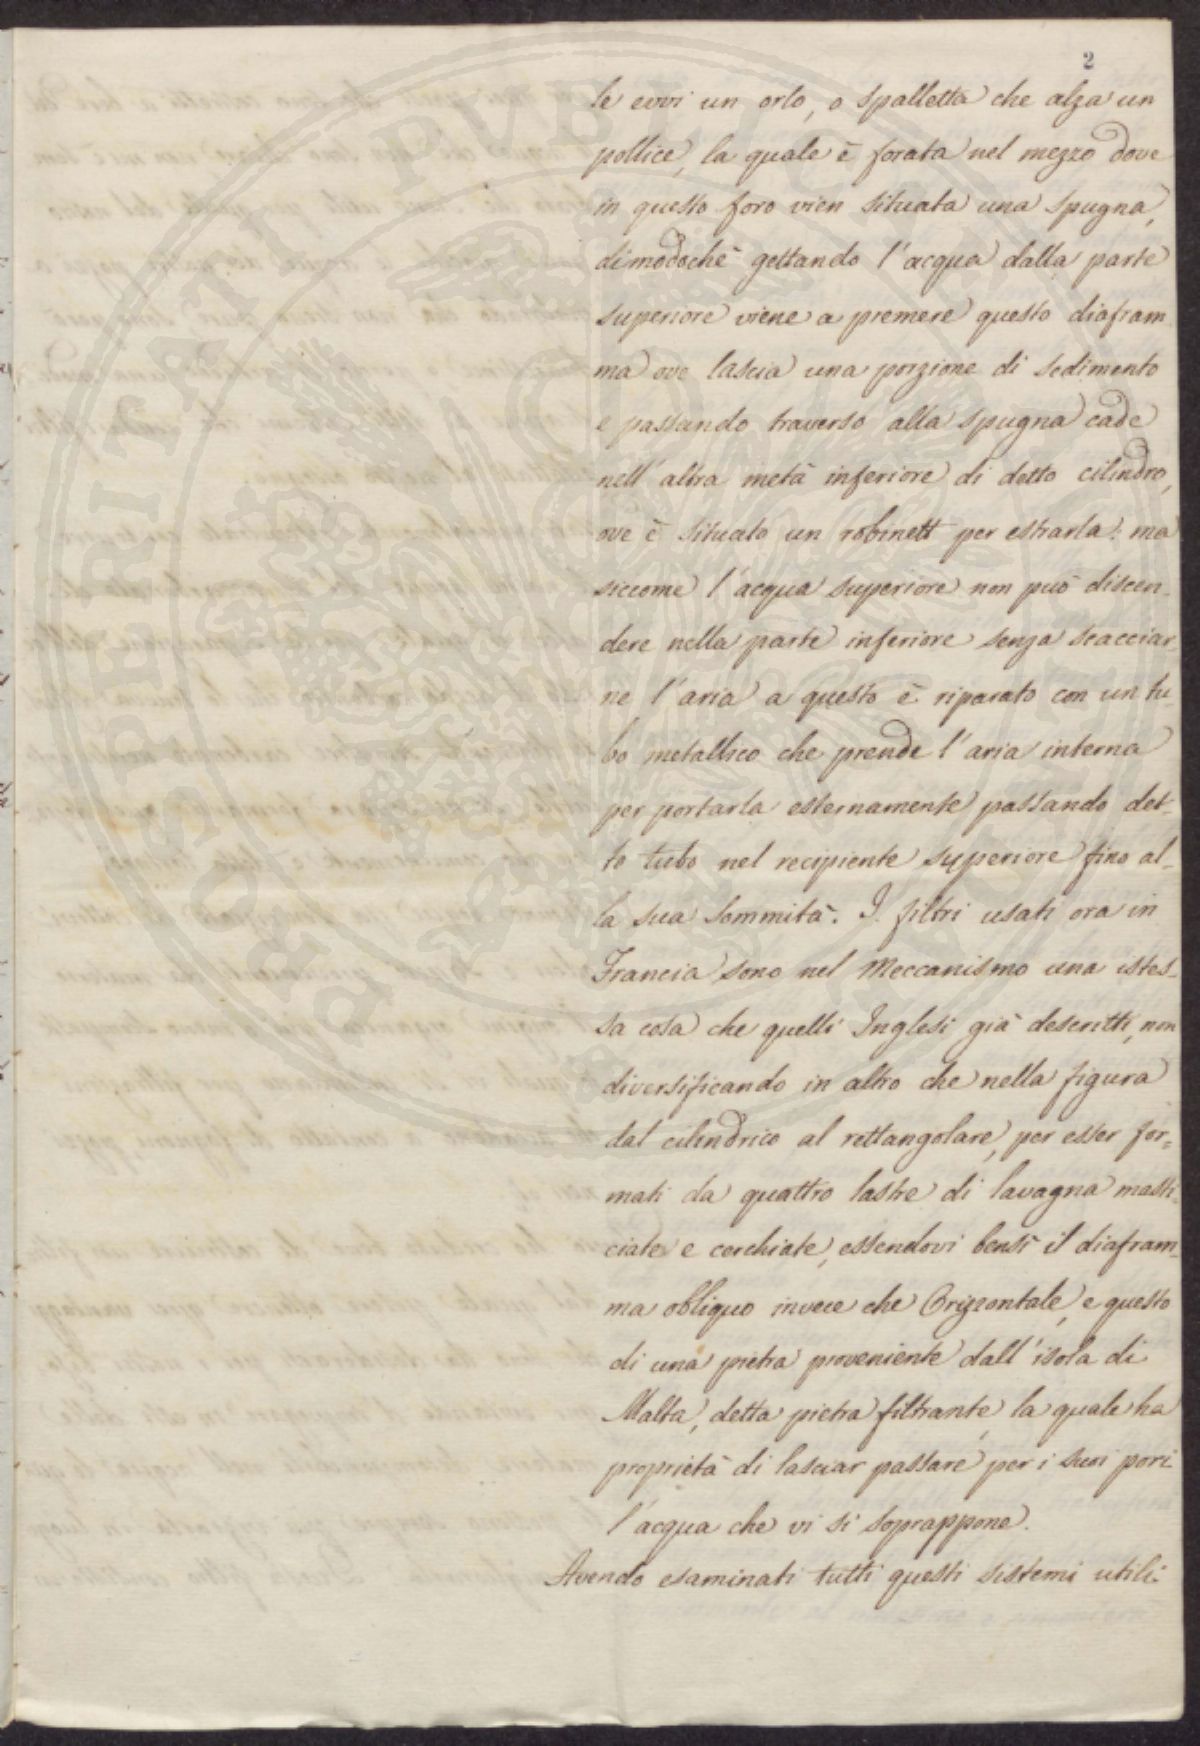 2
le evvi un orlo, o spalletta che alza un
pollice, la quale è forata nel mezzo dove
in questo foro vien situata una spugna,
dimodochè gettando l'acqua dalla parte
superiore viene a premere questo diafram
ma ove lascia una porzione di sedimento
e passando traverso alla spugna cade
nell'altra metà inferiore di detto cilindro,
ove è situato un robinett per estrarla: ma
siccome l'acqua superiore non può discen-
dere nella parte inferiore senza scacciar
ne l'aria a questo è riparato con un tu-
bo metallico che prende l'aria interna
per portarla esternamente passando det-
to tubo nel recipiente superiore fino al-
la sua sommità. I filtri usati ora in
Francia sono nel Meccanismo una istes-
sa cosa che quelli Inglesi già descritti, non
diversificando in altro che nella figura
dal cilindrico al rettangolare, per esser for=
mati da quattro lastre di lavagna masti-
ciate e cerchiate, essendovi bensì il diafram-
ma obliquo invece che Orizzontale, e questo
di una pietra proveniente dall'isola di
Malta, detta pietra filtrante, la quale ha
proprietà di lasciar passare per i suoi pori
l'acqua che vi si soprappone.
Avendo esaminati tutti questi sistemi utili:
PROSPERITATI PUBLICAE